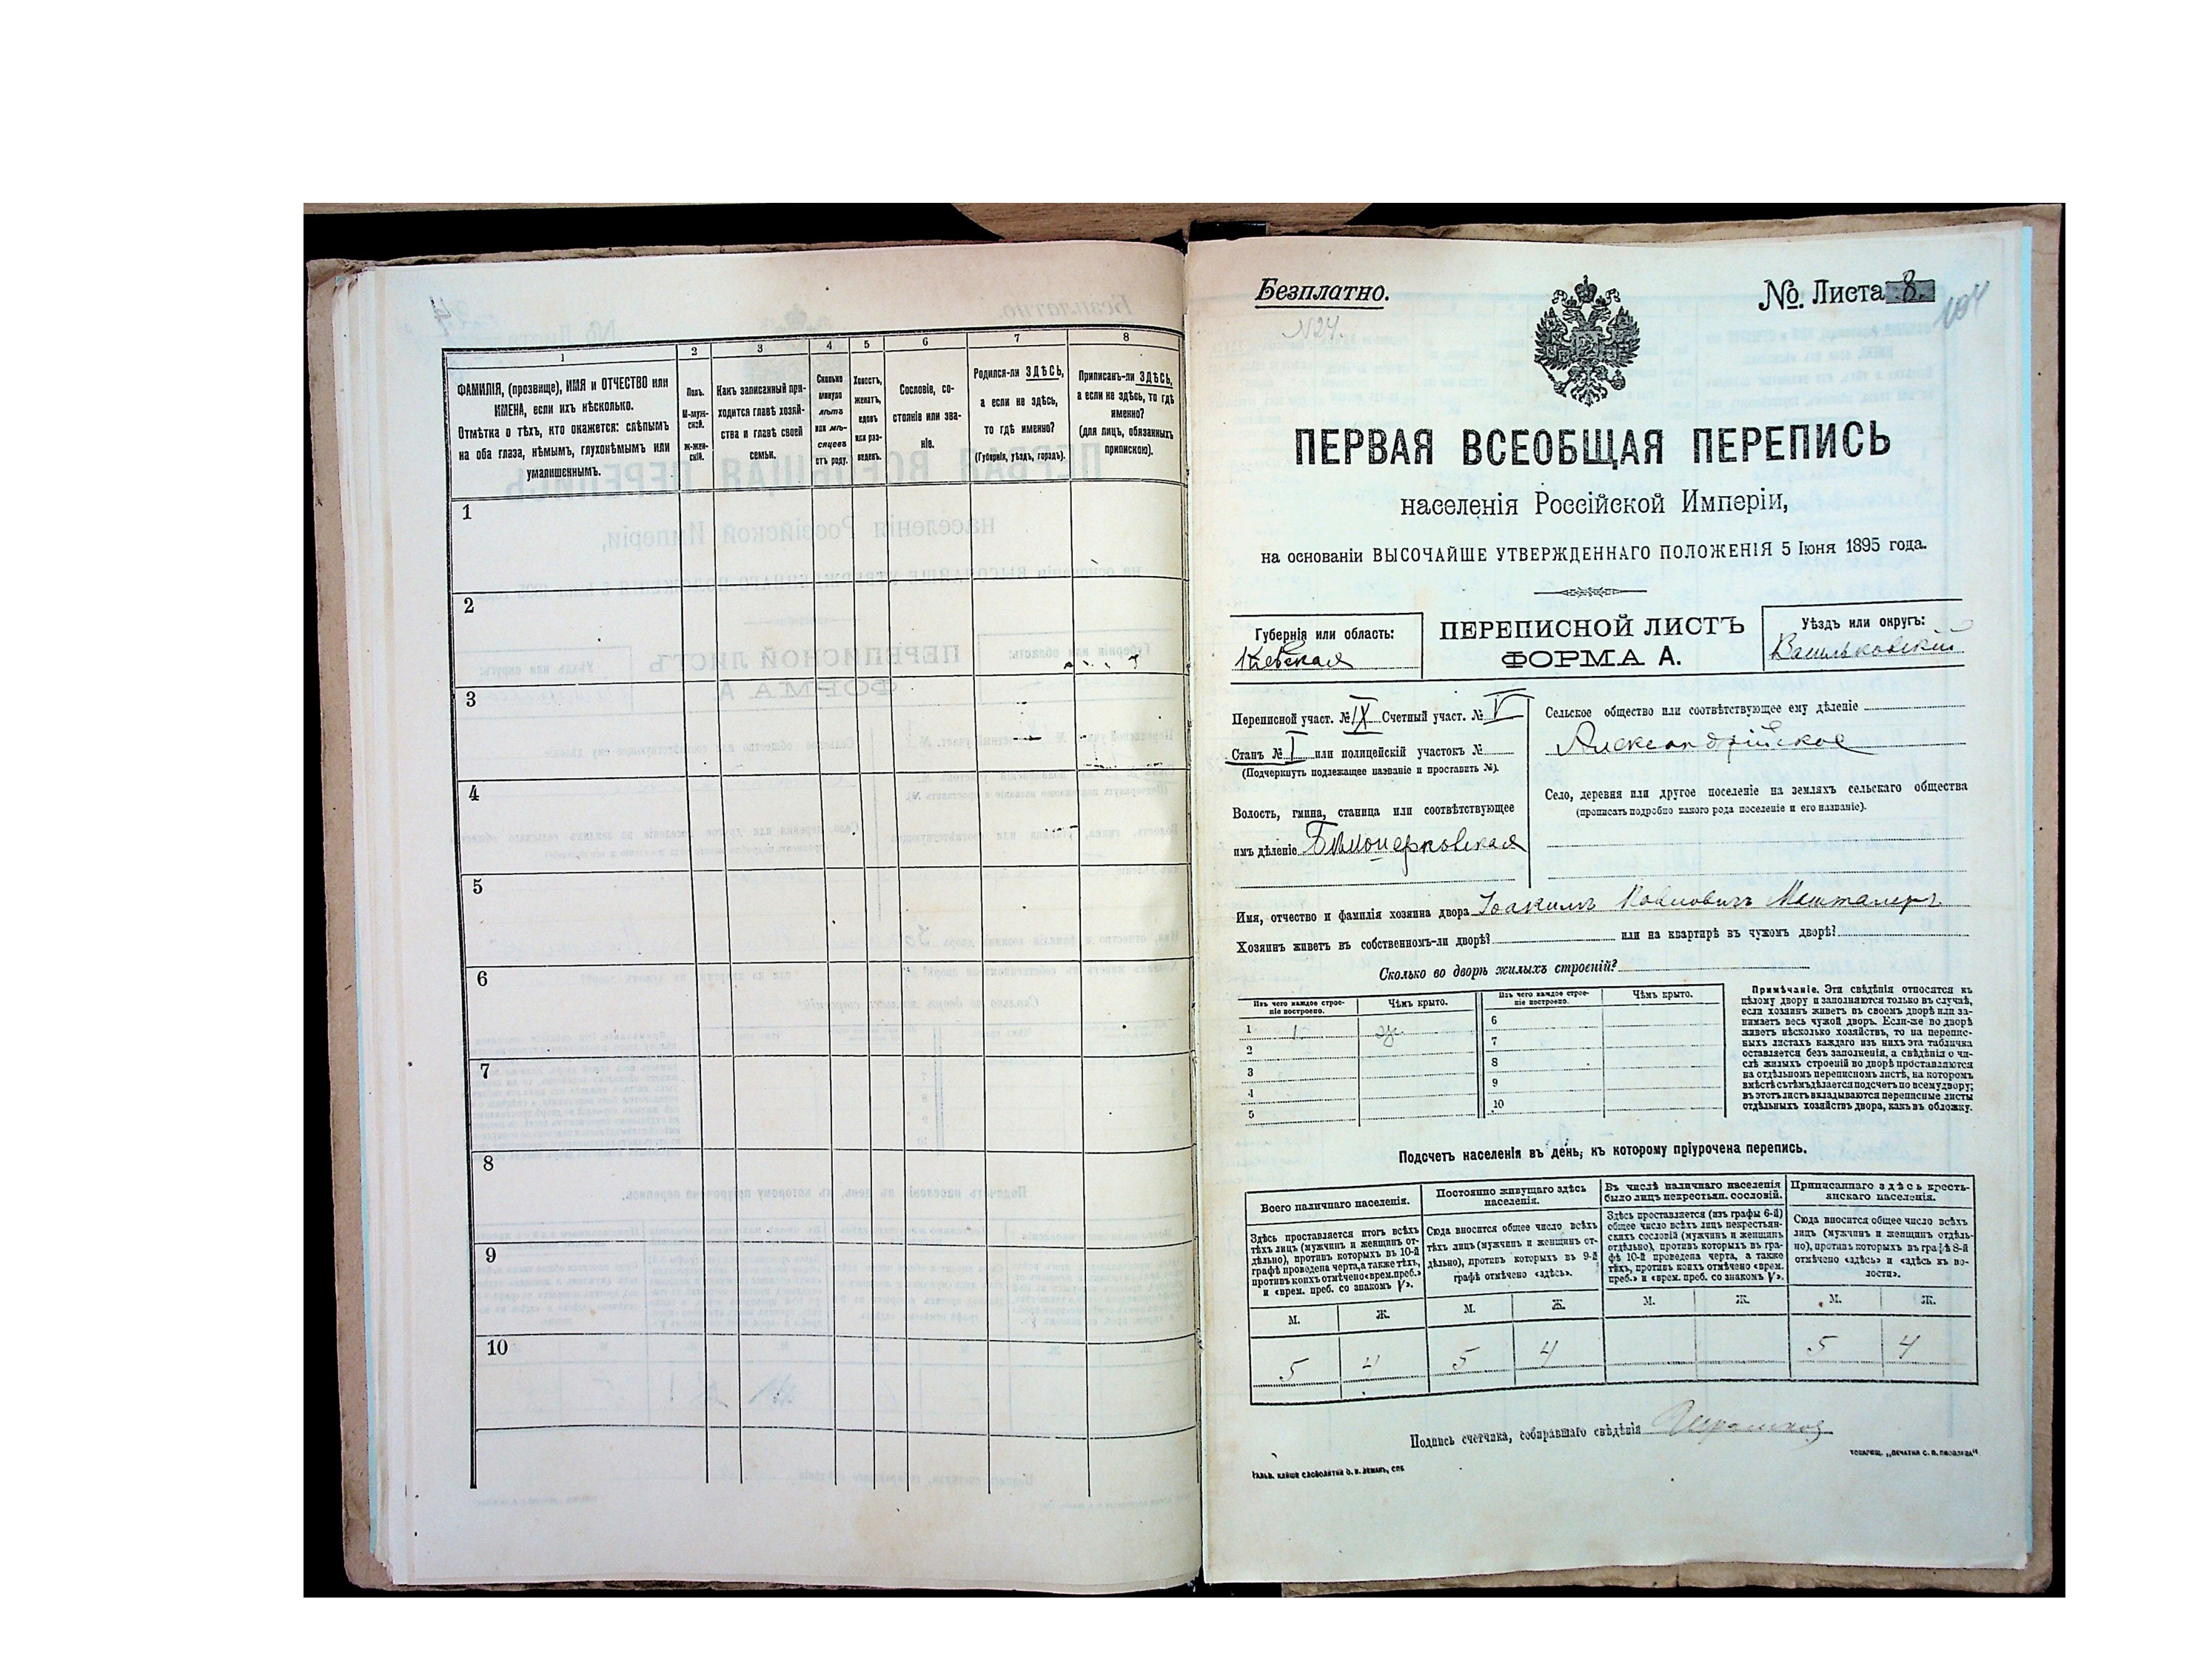 1 2 3 4 5 6 7 8
ФАМИЛІЯ, (прозвище), ИМЯ и ОТЧЕСТВО или
ИМЕНА, если ихъ нѣсколько.
Отмѣтка о тѣхъ, кто окажется: слѣпымъ
на оба глаза, нѣмымъ, глухонѣмымъ или
умалишеннымъ.
Полъ.
М-муж-
ской.
Ж-жен-
скій.
Какъ записанный при-
ходится главѣ хозяй-
ства и главѣ своей
семьи.
Сколько
минуло
лѣтъ
или мѣ-
сяцевъ
отъ роду.
Холостъ,
женатъ,
вдовъ
или раз-
веденъ.
Сословіе, со-
стояніе или зва-
ніе.
Родился-ли ЗДѢСЬ,
а если не здѣсь,
то гдѣ именно?
(Губернія, уѣздъ, городъ).
Приписанъ-ли ЗДѢСЬ,
а если не здѣсь, то гдѣ
именно?
(для лицъ, обязанныхъ
припискою).
1
2
3
4
5
6
7
8
9
10
Безплатно.
№ Листа 8.
194
N24.
ПЕРВАЯ ВСЕОБЩАЯ ПЕРЕПИСЬ
населенія Россійской Имперіи,
на основаніи ВЫСОЧАЙШЕ УТВЕРЖДЕННАГО ПОЛОЖЕНІЯ 5 Іюня 1895 года.
Губернія или область:
Кіевская
ПЕРЕПИСНОЙ ЛИСТЪ
ФОРМА А.
Уѣздъ или округъ:
Васильковскій
Переписной участ. № IX Счетный участ. № V
Станъ № I или полицейскій участокъ №
(Подчеркнуть подлежащее названіе и проставить №).
Волость, гмина, станица или соотвѣтствующее
имъ дѣленіе Бѣлоцерковская
Сельское общество или соотвѣтствующее ему дѣленіе
Александрійское
Село, деревня или другое поселеніе на земляхъ сельскаго общества
(прописать подробно какого рода поселеніе и его названіе).
Имя, отчество и фамилія хозяина двора Іоакимъ Павловичъ Машталеръ
Хозяинъ живетъ въ собственномъ-ли дворѣ? или на квартирѣ въ чужомъ дворѣ?
Сколько во дворѣ жилыхъ строеній?
Изъ чего каждое строе-
ніе построено.
Чѣмъ крыто.
Изъ чего каждое строе-
ніе построено.
Чѣмъ крыто.
1 1
2
3
4
5
6
7
8
9
10
Примѣчаніе. Эти свѣдѣнія относятся къ
цѣлому двору и заполняются только въ случаѣ,
если хозяинъ живетъ въ своемъ дворѣ или за-
нимаетъ весь чужой дворъ. Если-же во дворѣ
живетъ нѣсколько хозяйствъ, то на перепис-
ныхъ листахъ каждаго изъ нихъ эта табличка
оставляется безъ заполненія, а свѣдѣнія о чи-
слѣ жилыхъ строеній во дворѣ проставляются
на отдѣльномъ переписномъ листѣ, на которомъ
вмѣстѣ съ тѣмъ дѣлается подсчетъ по всему двору;
въ этотъ листъ вкладываются переписные листы
отдѣльныхъ хозяйствъ двора, какъ въ обложку.
Подсчетъ населенія въ день, къ которому пріурочена перепись.
Всего наличнаго населенія.
Здѣсь проставляется итогъ всѣхъ
тѣхъ лицъ (мужчинъ и женщинъ от-
дѣльно), противъ которыхъ въ 10-й
графѣ проведена черта, а также тѣхъ,
противъ коихъ отмѣчено «врем. преб.»
и «врем. преб. со знакомъ V».
Постоянно живущаго здѣсь
населенія.
Сюда вносится общее число всѣхъ
тѣхъ лицъ (мужчинъ и женщинъ от-
дѣльно), противъ которыхъ въ 9-й
графѣ отмѣчено «здѣсь».
Въ числѣ наличнаго населенія
было лицъ некрестьян. сословій.
Здѣсь проставляется (изъ графы 6-й)
общее число всѣхъ лицъ некрестьян-
скихъ сословій (мужчинъ и женщинъ
отдѣльно), противъ которыхъ въ гра-
фѣ 10-й проведена черта, а также
тѣхъ, противъ коихъ отмѣчено «врем.
преб.» и «врем. преб. со знакомъ V».
Приписаннаго здѣсь кресть-
янскаго населенія.
Сюда вносится общее число всѣхъ
лицъ (мужчинъ и женщинъ отдѣль-
но), противъ которыхъ въ графѣ 8-й
отмѣчено «здѣсь» и «здѣсь къ во-
лости».
М. Ж. М. Ж. М. Ж. М. Ж.
5 4 5 4 5 4
Подпись счетчика, собиравшаго свѣдѣнія
ТОВАРИЩ. „ПЕЧАТНЯ С. П. ЯКОВЛЕВА“
ГАЛЬВ. КЛИШЕ СЛОВОЛИТНИ О. И. ЛЕМАНЪ, СПБ